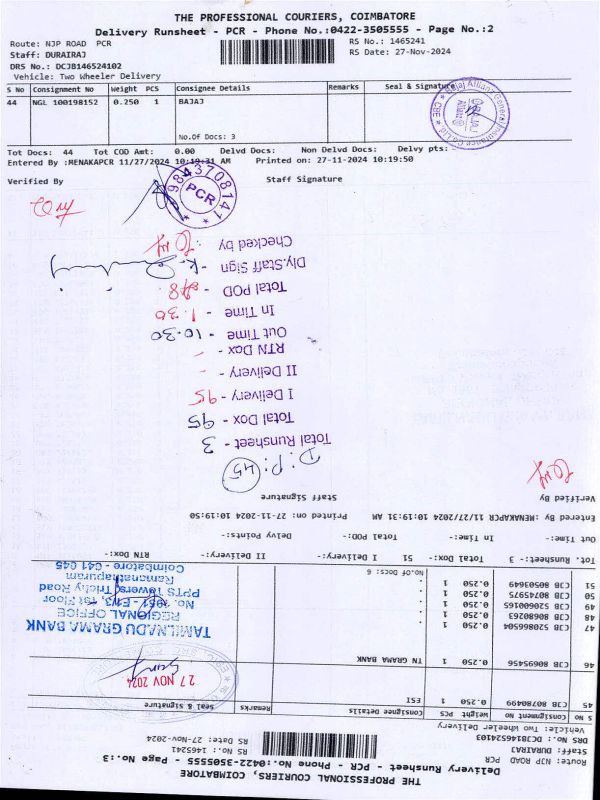 THE PROFESSIONAL COURIERS, COIMBATORE
Delivery Runsheet - PCR - Phone No.:0422-3505555 - Page No.:2
Route: NJP ROAD PCR
RS No.: 1465241
Staff: DURAIRAJ
RS Date: 27-Nov-2024
DRS No.: DCJB146524102
Vehicle: Two Wheeler Delivery
S No Consignment No Weight PCS Consignee Details Remarks Seal & Signature
44 NGL 100198152 0.250 1 BAJAJ
No.Of Docs: 3
Tot Docs: 44 Tot COD Amt: 0.00 Delvd Docs: Non Delvd Docs: Delvy pts:
Entered By :MENAKAPCR 11/27/2024 10:19:31 AM Printed on: 27-11-2024 10:19:50
Verified By Staff Signature
9843708141
PCR
THE PROFESSIONAL COURIERS, COIMBATORE
Delivery Runsheet - PCR - Phone No.:0422-3505555 - Page No.:3
Route: NJP ROAD PCR
RS No.: 1465241
Staff: DURAIRAJ
RS Date: 27-Nov-2024
DRS No.: DCJB146524103
Vehicle: Two Wheeler Delivery
S No Consignment No Weight PCS Consignee Details Remarks Seal & Signature
45 CJB 80780499 0.250 1 ESI
27 NOV 2024
46 CJB 80695456 0.250 1 TN GRAMA BANK
47 CJB 520866504 0.250 1 .
48 CJB 80680263 0.250 1 .
49 CJB 520060165 0.250 1 .
50 CJB 80745975 0.250 1 .
51 CJB 80503649 0.250 1 .
No.Of Docs: 6
TAMILNADU GRAMA BANK
REGIONAL OFFICE
No. 1951 - E1/3, 1st Floor
PPTS Towers, Trichy Road
Ramanathapuram
Coimbatore - 641 045
Tot. Runsheet:- 3 Total Dox:- 51 I Delivery:- II Delivery:- RTN Dox:-
Out Time:- In Time:- Total POD:- Delvy Points:-
Entered By :MENAKAPCR 11/27/2024 10:19:31 AM Printed on: 27-11-2024 10:19:50
Verified By Staff Signature
D.P. 45
Total Runsheet - 3
Total Dox - 95
I Delivery - 95
II Delivery - -
RTN Dox - -
Out Time - 10.30
In Time - 1.30
Total POD -
Dly.Staff Sign -
Checked by :